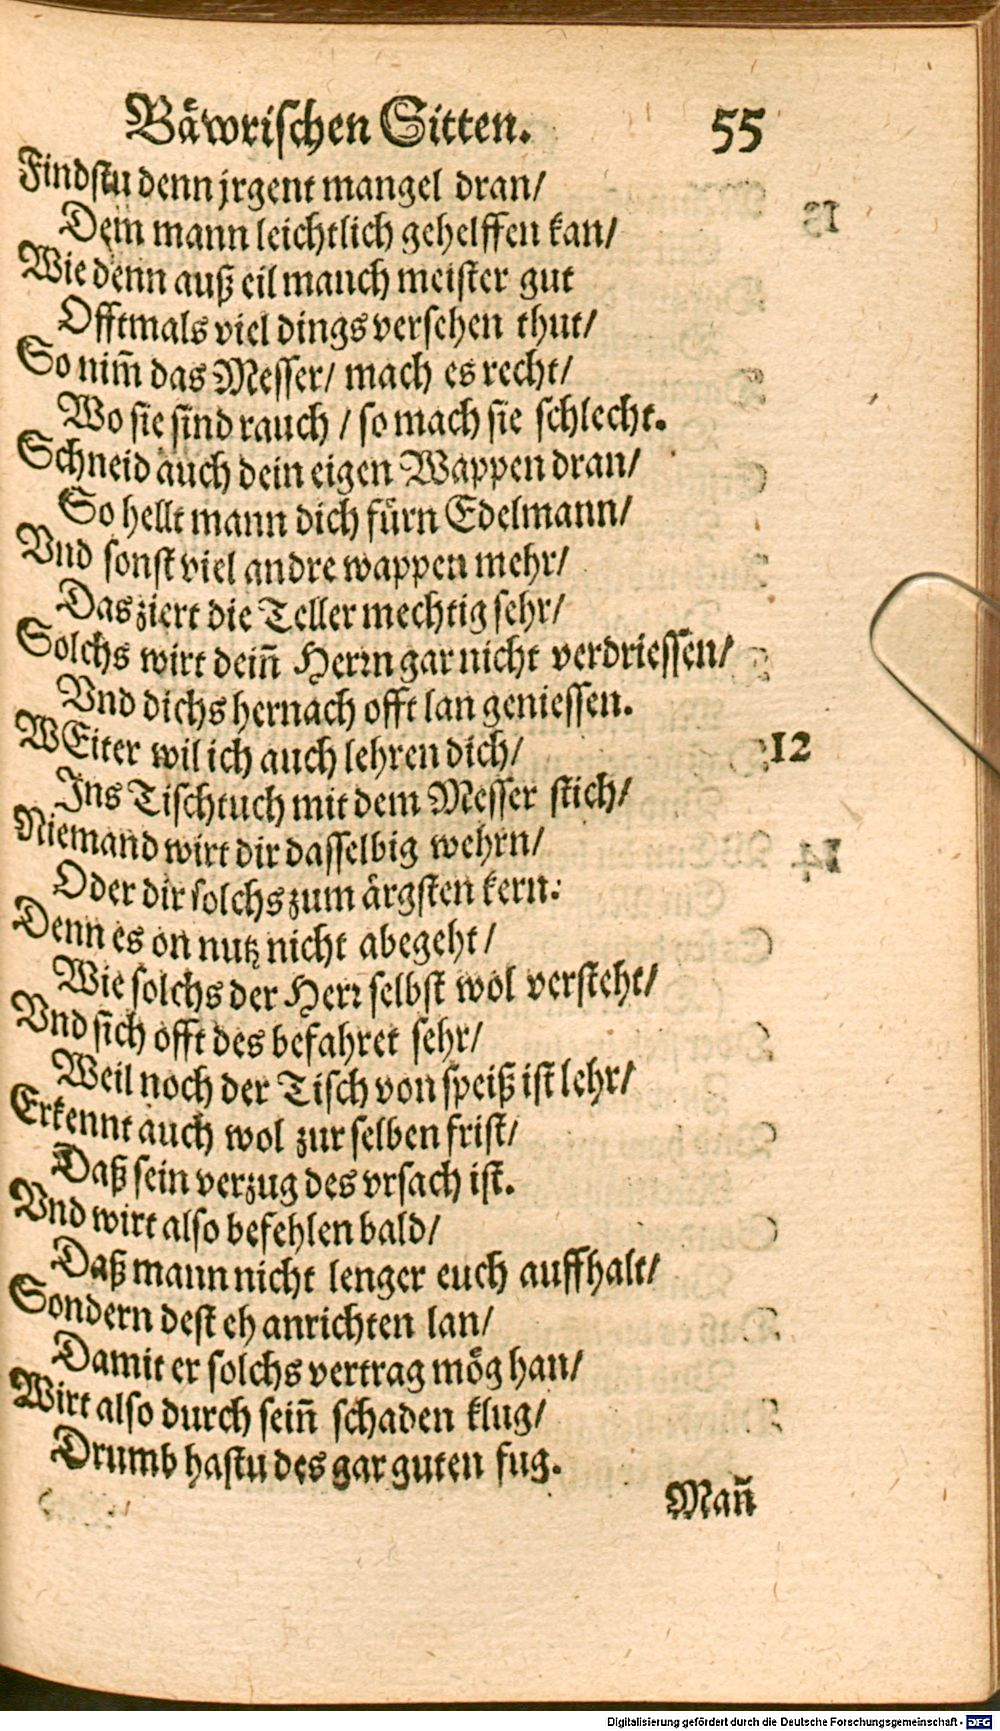 Bäwrischen Sitten. 55
Findstu denn jrgent mangel dran/
Dem mann leichtlich gehelffen kan/
Wie denn auß eil manch meister gut
Offtmals viel dings versehen thut/
So nim̃ das Messer/ mach es recht/
Wo sie sind rauch / so mach sie schlecht.
Schneid auch dein eigen Wappen dran/
So hellt mann dich fürn Edelmann/
Vnd sonst viel andre wappen mehr/
Das ziert die Teller mechtig sehr/
Solchs wirt dein̄ Herrn gar nicht verdriessen/
Vnd dichs hernach offt lan geniessen.
WEiter wil ich auch lehren dich/ 12
Ins Tischtuch mit dem Messer stich/
Niemand wirt dir dasselbig wehrn/
Oder dir solchs zum ärgsten kern:
Denn es on nutz nicht abegeht/
Wie solchs der Herr selbst wol versteht/
Vnd sich offt des befahret sehr/
Weil noch der Tisch von speiß ist lehr/
Erkennt auch wol zur selben frist/
Daß sein verzug des vrsach ist.
Vnd wirt also befehlen bald/
Daß mann nicht lenger euch auffhalt/
Sondern dest eh anrichten lan/
Damit er solchs vertrag mög han/
Wirt also durch sein̄ schaden klug/
Drumb hastu des gar guten fug.
Man̄
Digitalisierung gefördert durch die Deutsche Forschungsgemeinschaft - DFG